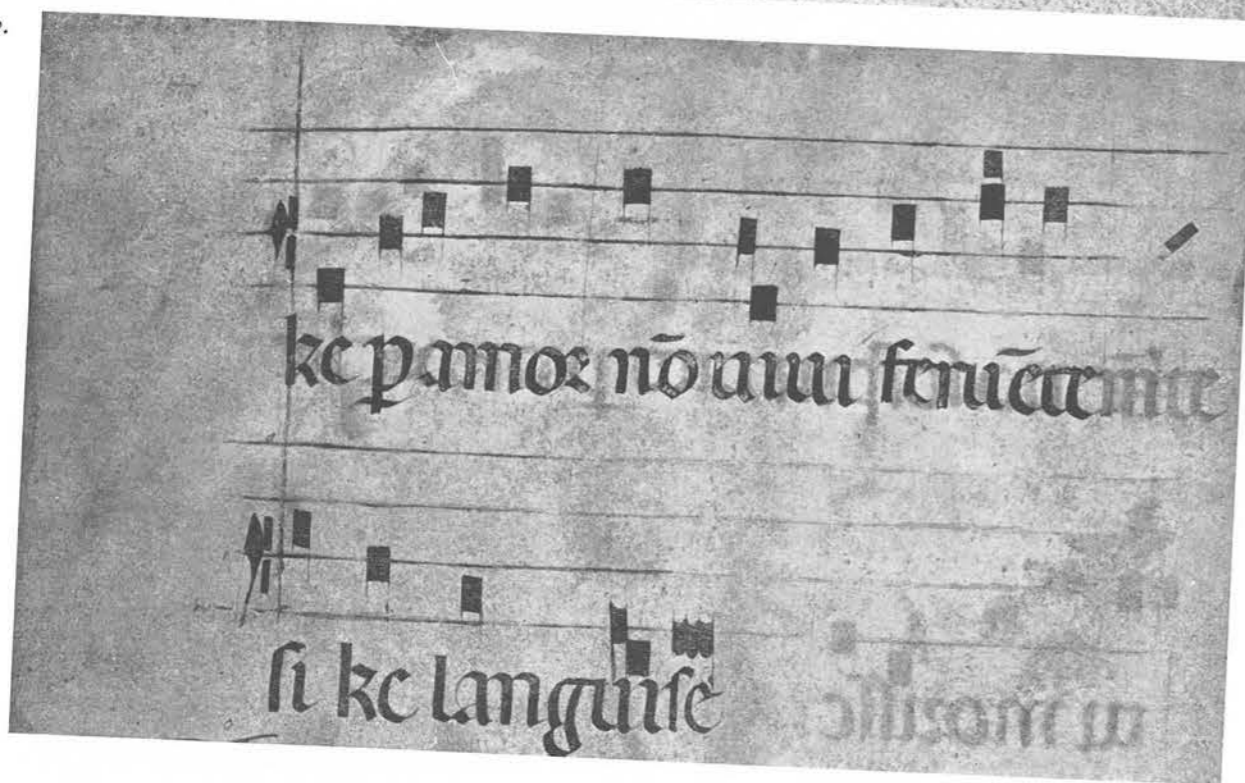 ke ꝑ amor nō uiui feruēte
si ke languise